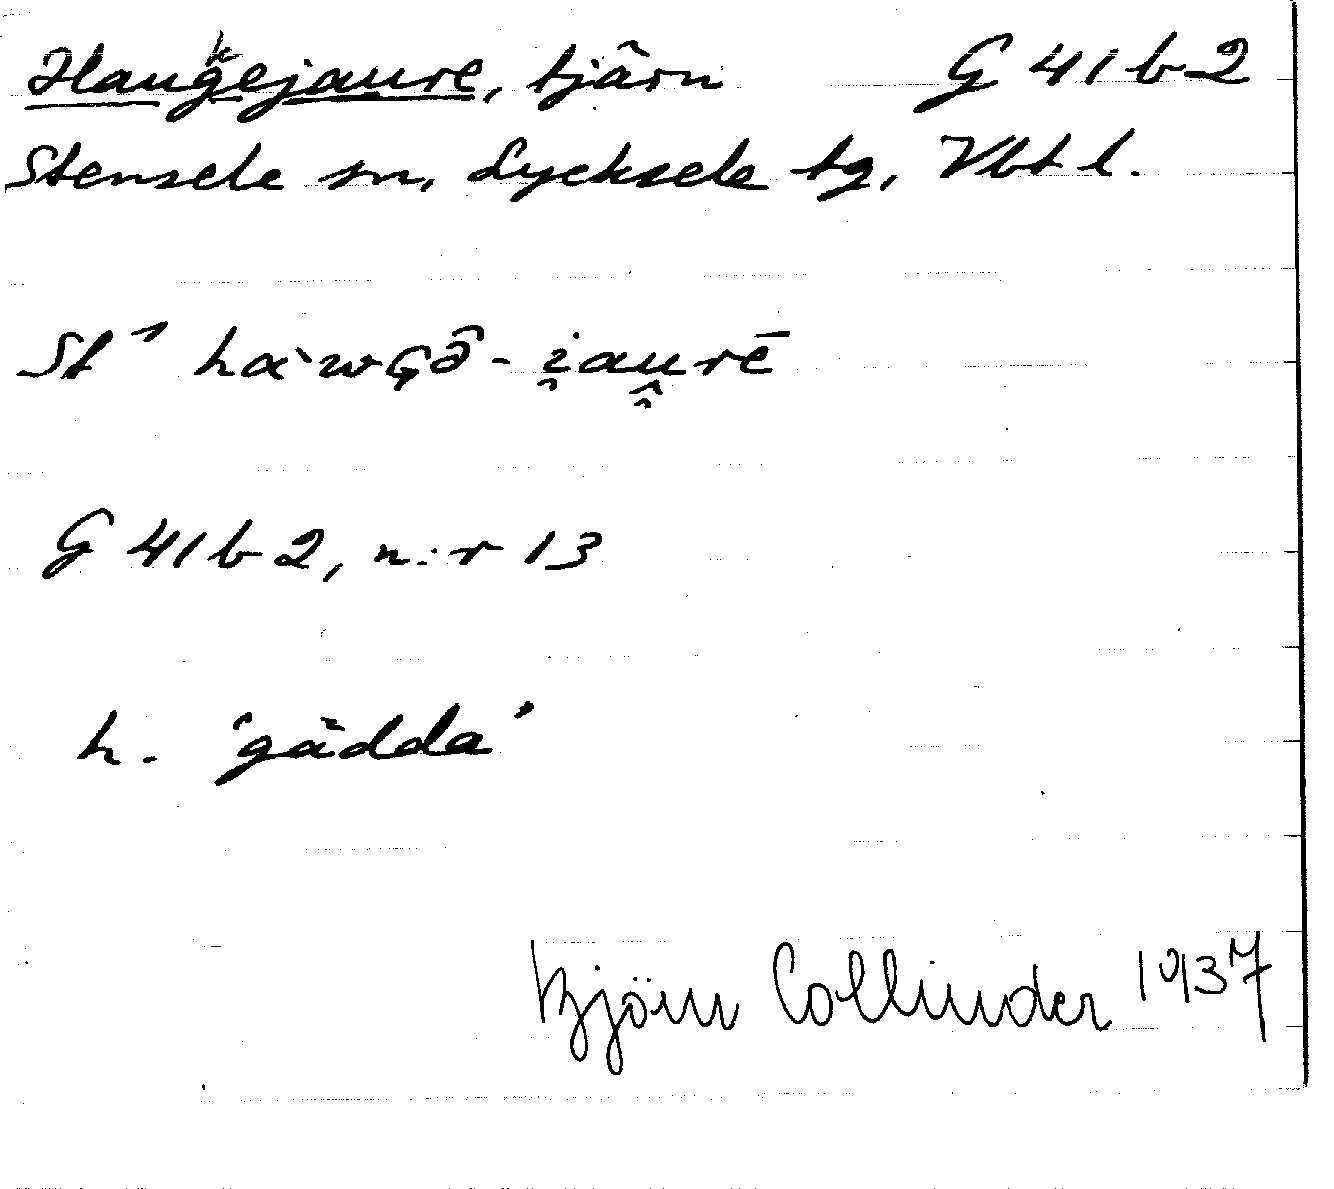 Haugejaure, tjärn G 41 b 2
Stensele sn, Lycksele tg, Vbt l.
St
G 41 b 2, n:r 13
h. 'gädda'
Björn Collinder 1937